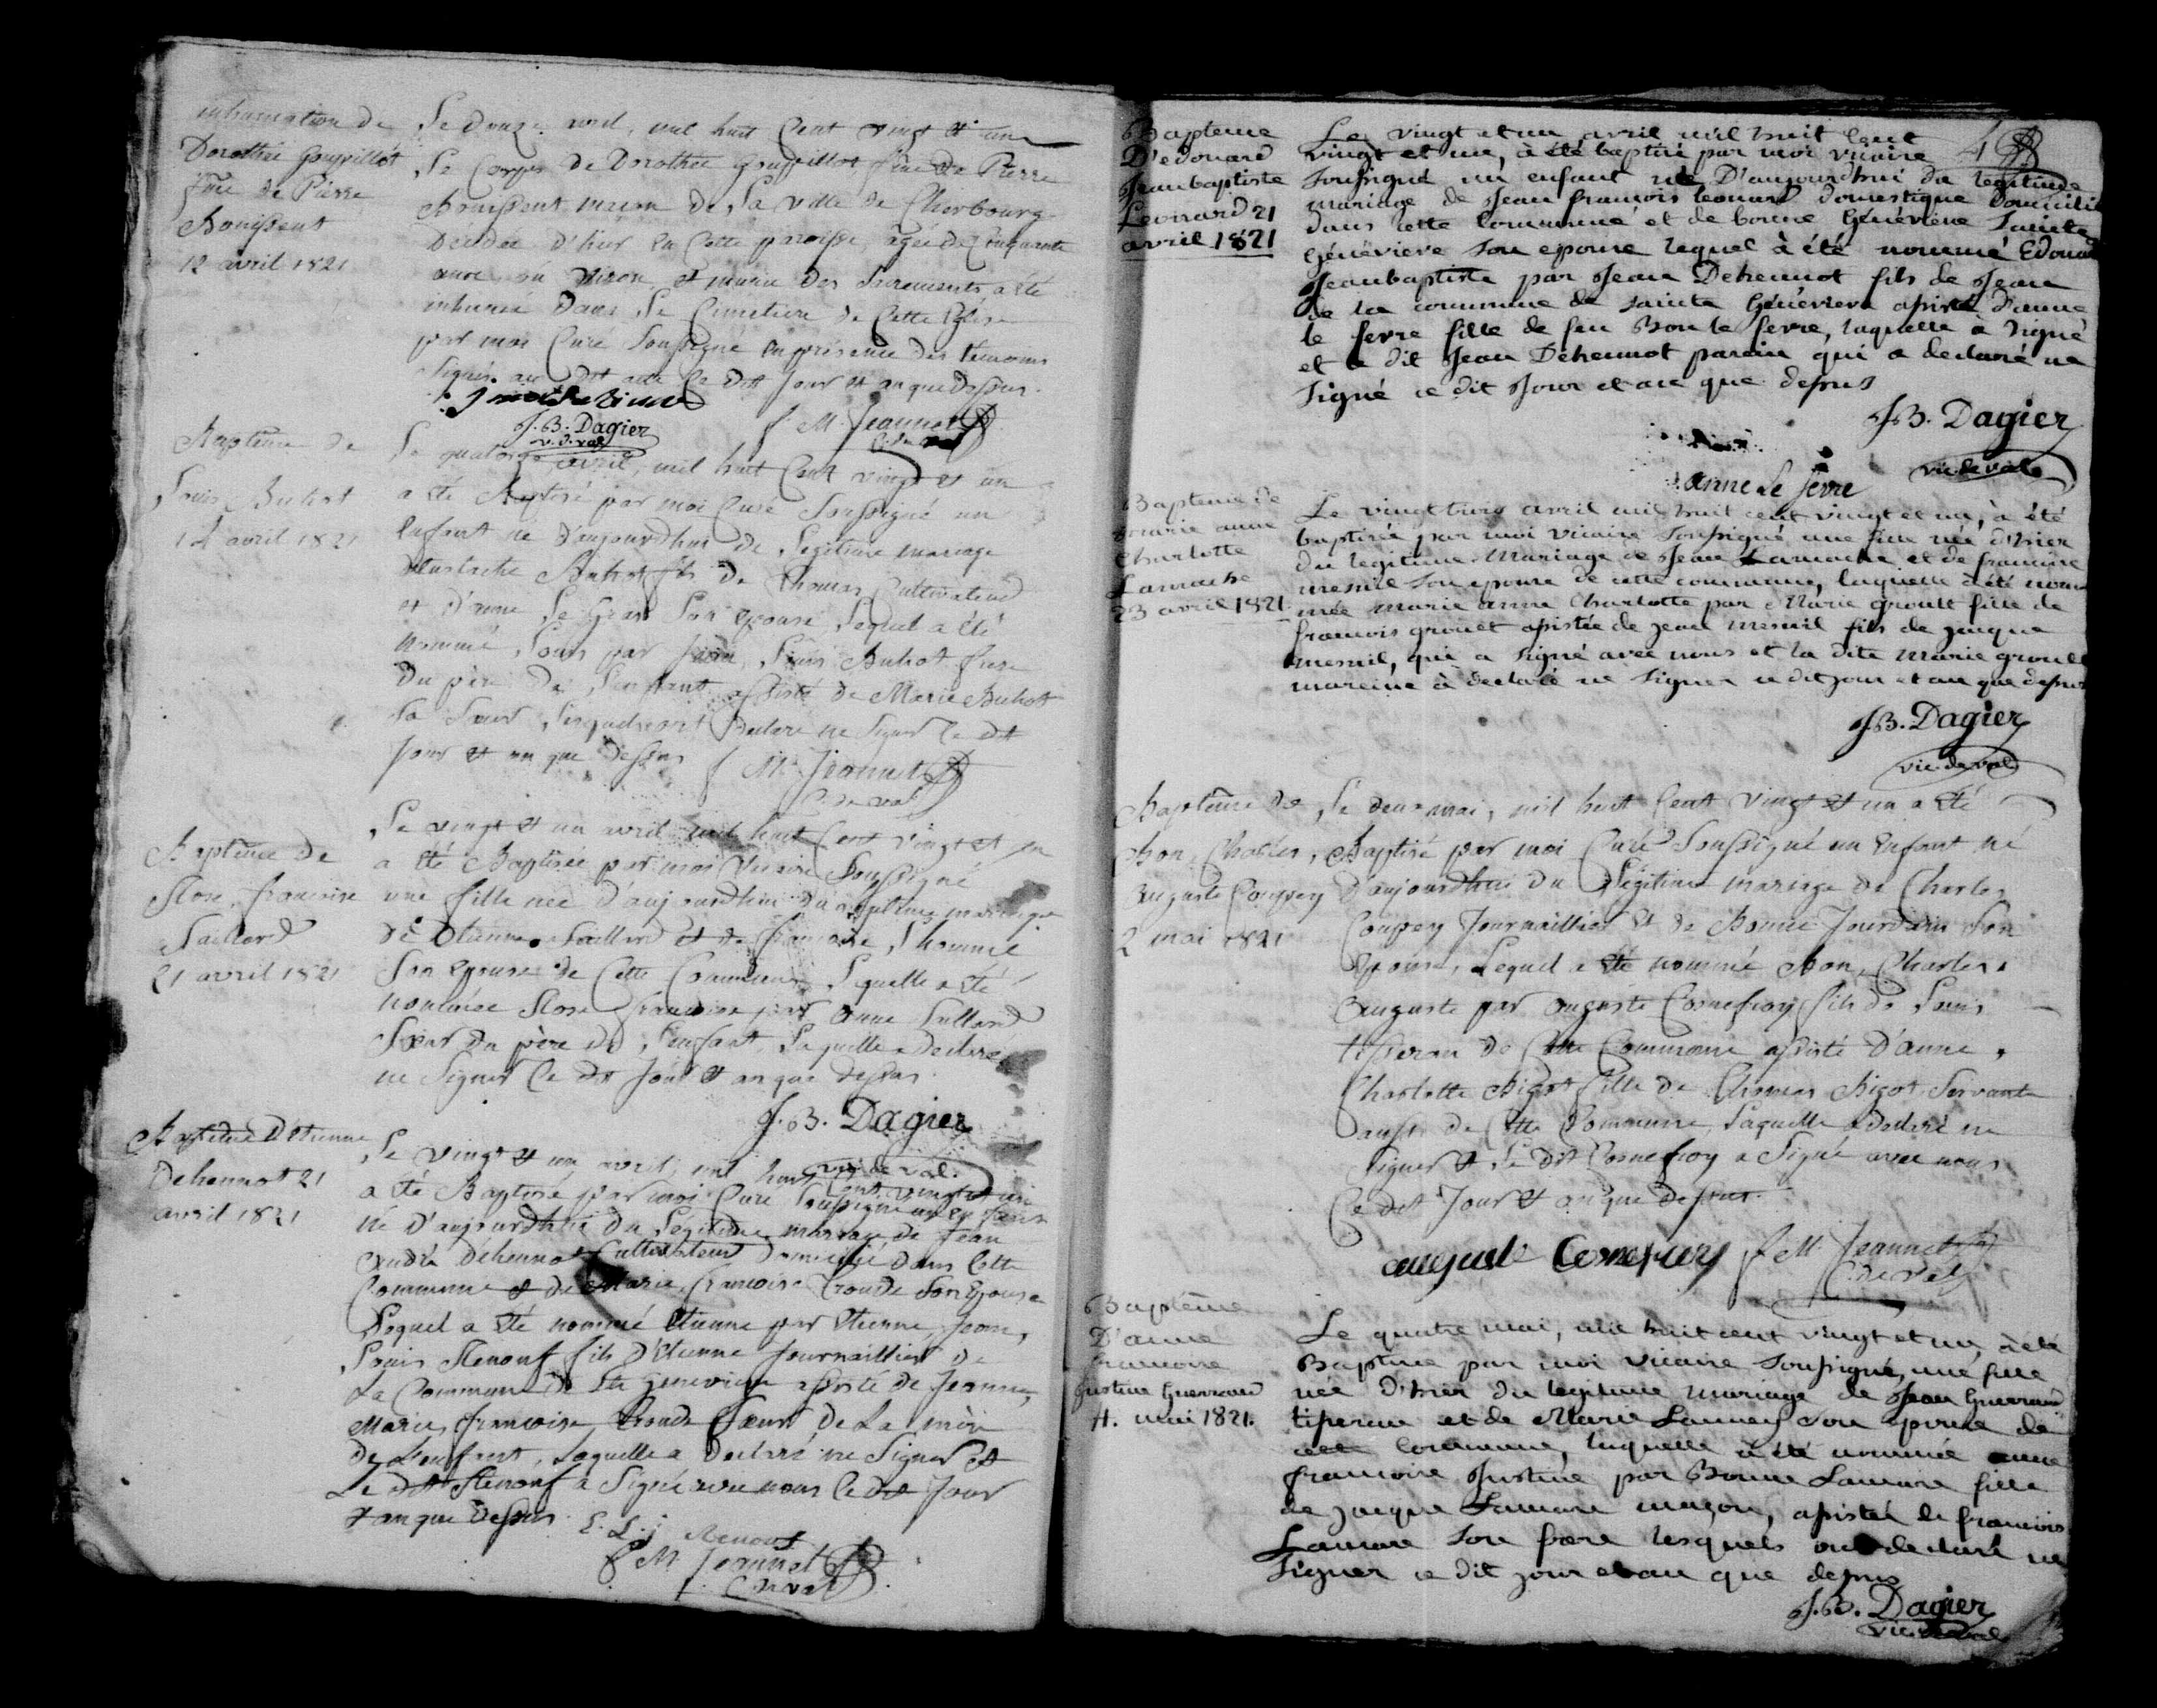 inhumation de
Dorothée Gouppillot
fme de Pierre
Bonissent
12 avril 1821
Le douze avril, mil huit Cent vingt et un
Le Corps de Dorothée Gouppillot fme de Pierre
Bonissent maçon de la ville de Cherbourg
Décédée d'hier en Cette paroisse, agée de Cinquante
ans ou viron, et munie des Sacrements a été
inhumée dans le Cimetière de Cette Eglise
par moi Curé Soussigné en présence des témoins
Signés au dit acte Ce dit Jour et an que dessus.
J.B. Dagier
v. d. val
f. M. Jeannet
C. du val
Baptême de
Louis Buhot
14 avril 1821
Le quatorze avril, mil huit Cent vingt et un
a été Baptisé par moi Curé Soussigné un
Enfant né d'aujourdhui de Légitime mariage
d'Eustache Buhot fils de Thomas Cultivateur
et d'anne Le Gras Son epouse Lequel a été
nommé Louis par Louis Buhot frere
du père de L'enfant assisté de Marie Buhot
Sa Sœur Lesquels ont déclaré ne Signer Ce dit
Jour et an que dessus
f. M. Jeannet
C. de val
Baptême de
Rose françoise
Taillard
21 avril 1821
Le vingt et un avril mil huit Cent vingt et un
a été Baptisée par moi Vicaire Soussigné
une fille née d'aujourdhui du Légitime mariage
de Etienne Taillard et de françoise L'homme
Son epouse de Cette Commune Laquelle a été
nommée Rose françoise par Anne Taillard
Sœur du père de L'enfant, Laquelle a Déclaré
ne Signer Ce dit Jour et an que dessus.
J.B. Dagier
vic. de val.
Baptême d'Etienne
Dehennot 21
avril 1821
Le vingt et un avril, mil huit Cent vingt et un
a été Baptisé par moi Curé Soussigné un Enfant
né d'aujourdhui du Légitime mariage de Jean
André Dehennot Cultivateur Domicilié dans Cette
Commune et de Marie françoise Troude Son Epouse
Lequel a été nommé Etienne par Etienne, Jean,
Louis Renouf fils d'Etienne Journaillier de
La Commune de Ste Genevieve assisté de Jeanne,
Marie, françoise Troude Sœur de La mère
de L'enfant, Laquelle a Déclaré ne Signer et
Le dit Renouf a Signé avec nous Ce dit Jour
et an que dessus.
E. L. j Renouf
f. M. Jeannet
C. de val
4
Bapteme
D'edouard
Jeanbaptiste
Leonard 21
avril 1821
Le vingt et un avril mil huit Cent
vingt et un, à été baptisé par moi vicaire
Soussigné un enfant né D'aujourdhui du legitime
mariage de Jean françois leonard domestique Domicilié
dans cette Commune et de bonne Généviève Sainte
Généviève Son epouse lequel à été nommé Edouard
Jeanbaptiste par Jean Dehennot fils de Jean
de la commune de Sainte Généviève assisté d'anne
le fevre fille de feu Bon le fevre, laquelle à signé
et le dit Jean Dehennot parain qui a declaré ne
Signé ce dit Jour et an que dessus
J.B. Dagier
vic. de val
anne Le fevre
Bapteme de
marie anne
Charlotte
Lamache
23 avril 1821
Le vingt trois avril mil huit cent vingt et un, à été
baptisée par moi vicaire Soussigné une fille née d'hier
du legitime Mariage de Jean Lamache et de françoise
mesnil Son epouse de cette commune, laquelle à été nom-
mée marie anne Charlotte par Marie groult fille de
francois groult assistée de jean mesnil fils de jacque
mesnil, qui a signé avec nous et la dite marie groult
mareine à declaré ne signer ce dit jour et an que dessus
J.B. Dagier
vic. de val
Baptême de
Bon, Charles,
Auguste Couppey
2 mai 1821
Le deux mai, mil huit Cent vingt et un a été
Baptisé par moi Curé Soussigné un Enfant né
d'aujourdhui du Légitime mariage de Charles
Couppey Journaillier et de Bonne Jourdain Son
Epouse, Lequel a été nommé Bon, Charles,
Auguste par Auguste Cosnefroy fils de Louis
tisseran de Cette Commune assisté d'anne,
Charlotte Bigot fille de Thomas Bigot Servante
aussi de Cette Commune, Laquelle a Déclaré ne
Signer et Le Dit Cosnefroy a Signé avec nous
Ce dit Jour et an que dessus.
auguste Cosnefroy
f. M. Jeannet
C. de val
Baptême
D'anne
francoise
Justine Guerrand
4. mai 1821.
Le quatre mai, mil huit cent vingt et un, à été
Baptisée par moi vicaire Soussigné, une fille
née d'hier du legitime mariage de Jean Guerrand
tisseran et de Marie Launey Son epouse de
cette Commune, laquelle à été nommée anne
françoise Justine par Bonne Lamare fille
de jacque Lamare maçon, assistée de francois
Lamare Son frere lesquels ont declaré ne
Signer ce dit jour et an que dessus
J.B. Dagier
vic. de val